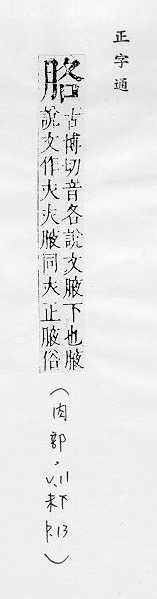 正字通
胳
古博切音各說文腋下也腋
說文作亦亦腋同亦正腋俗
(肉部，v.11
未下
p.13)